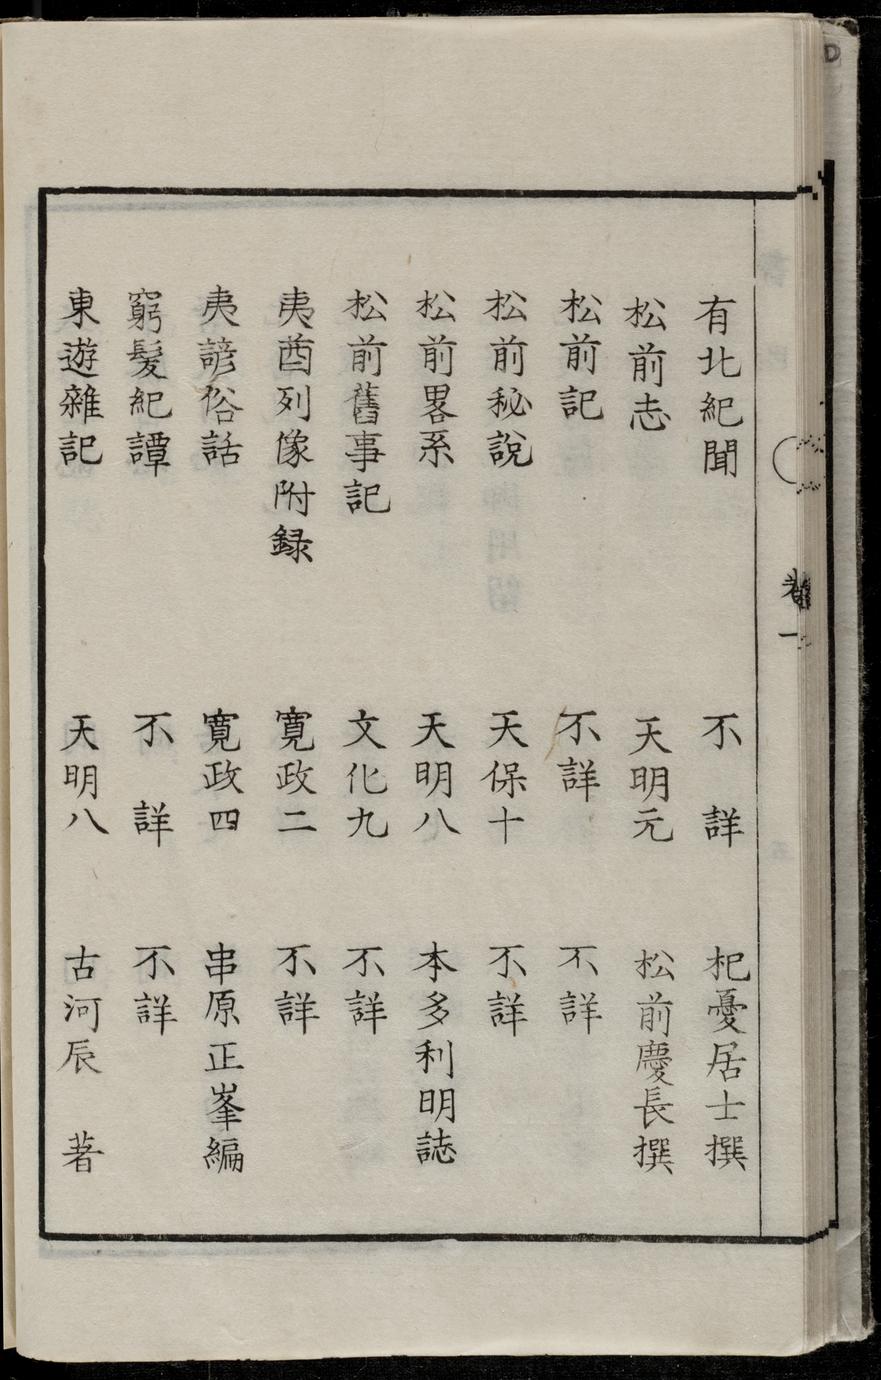 有北紀聞　不　詳　杞憂居士撰
松前志　天明元　松前慶長撰
松前記　不詳　不詳
松前秘說　天保十　不詳
松前畧系　天明八　本多利明誌
松前舊事記　文化九　不詳
夷酋列像附録　寛政二　不詳
夷諺俗話　寛政四　串原正峯編
窮髮紀譚　不　詳　不詳
東遊雜記　天明八　古河辰　著